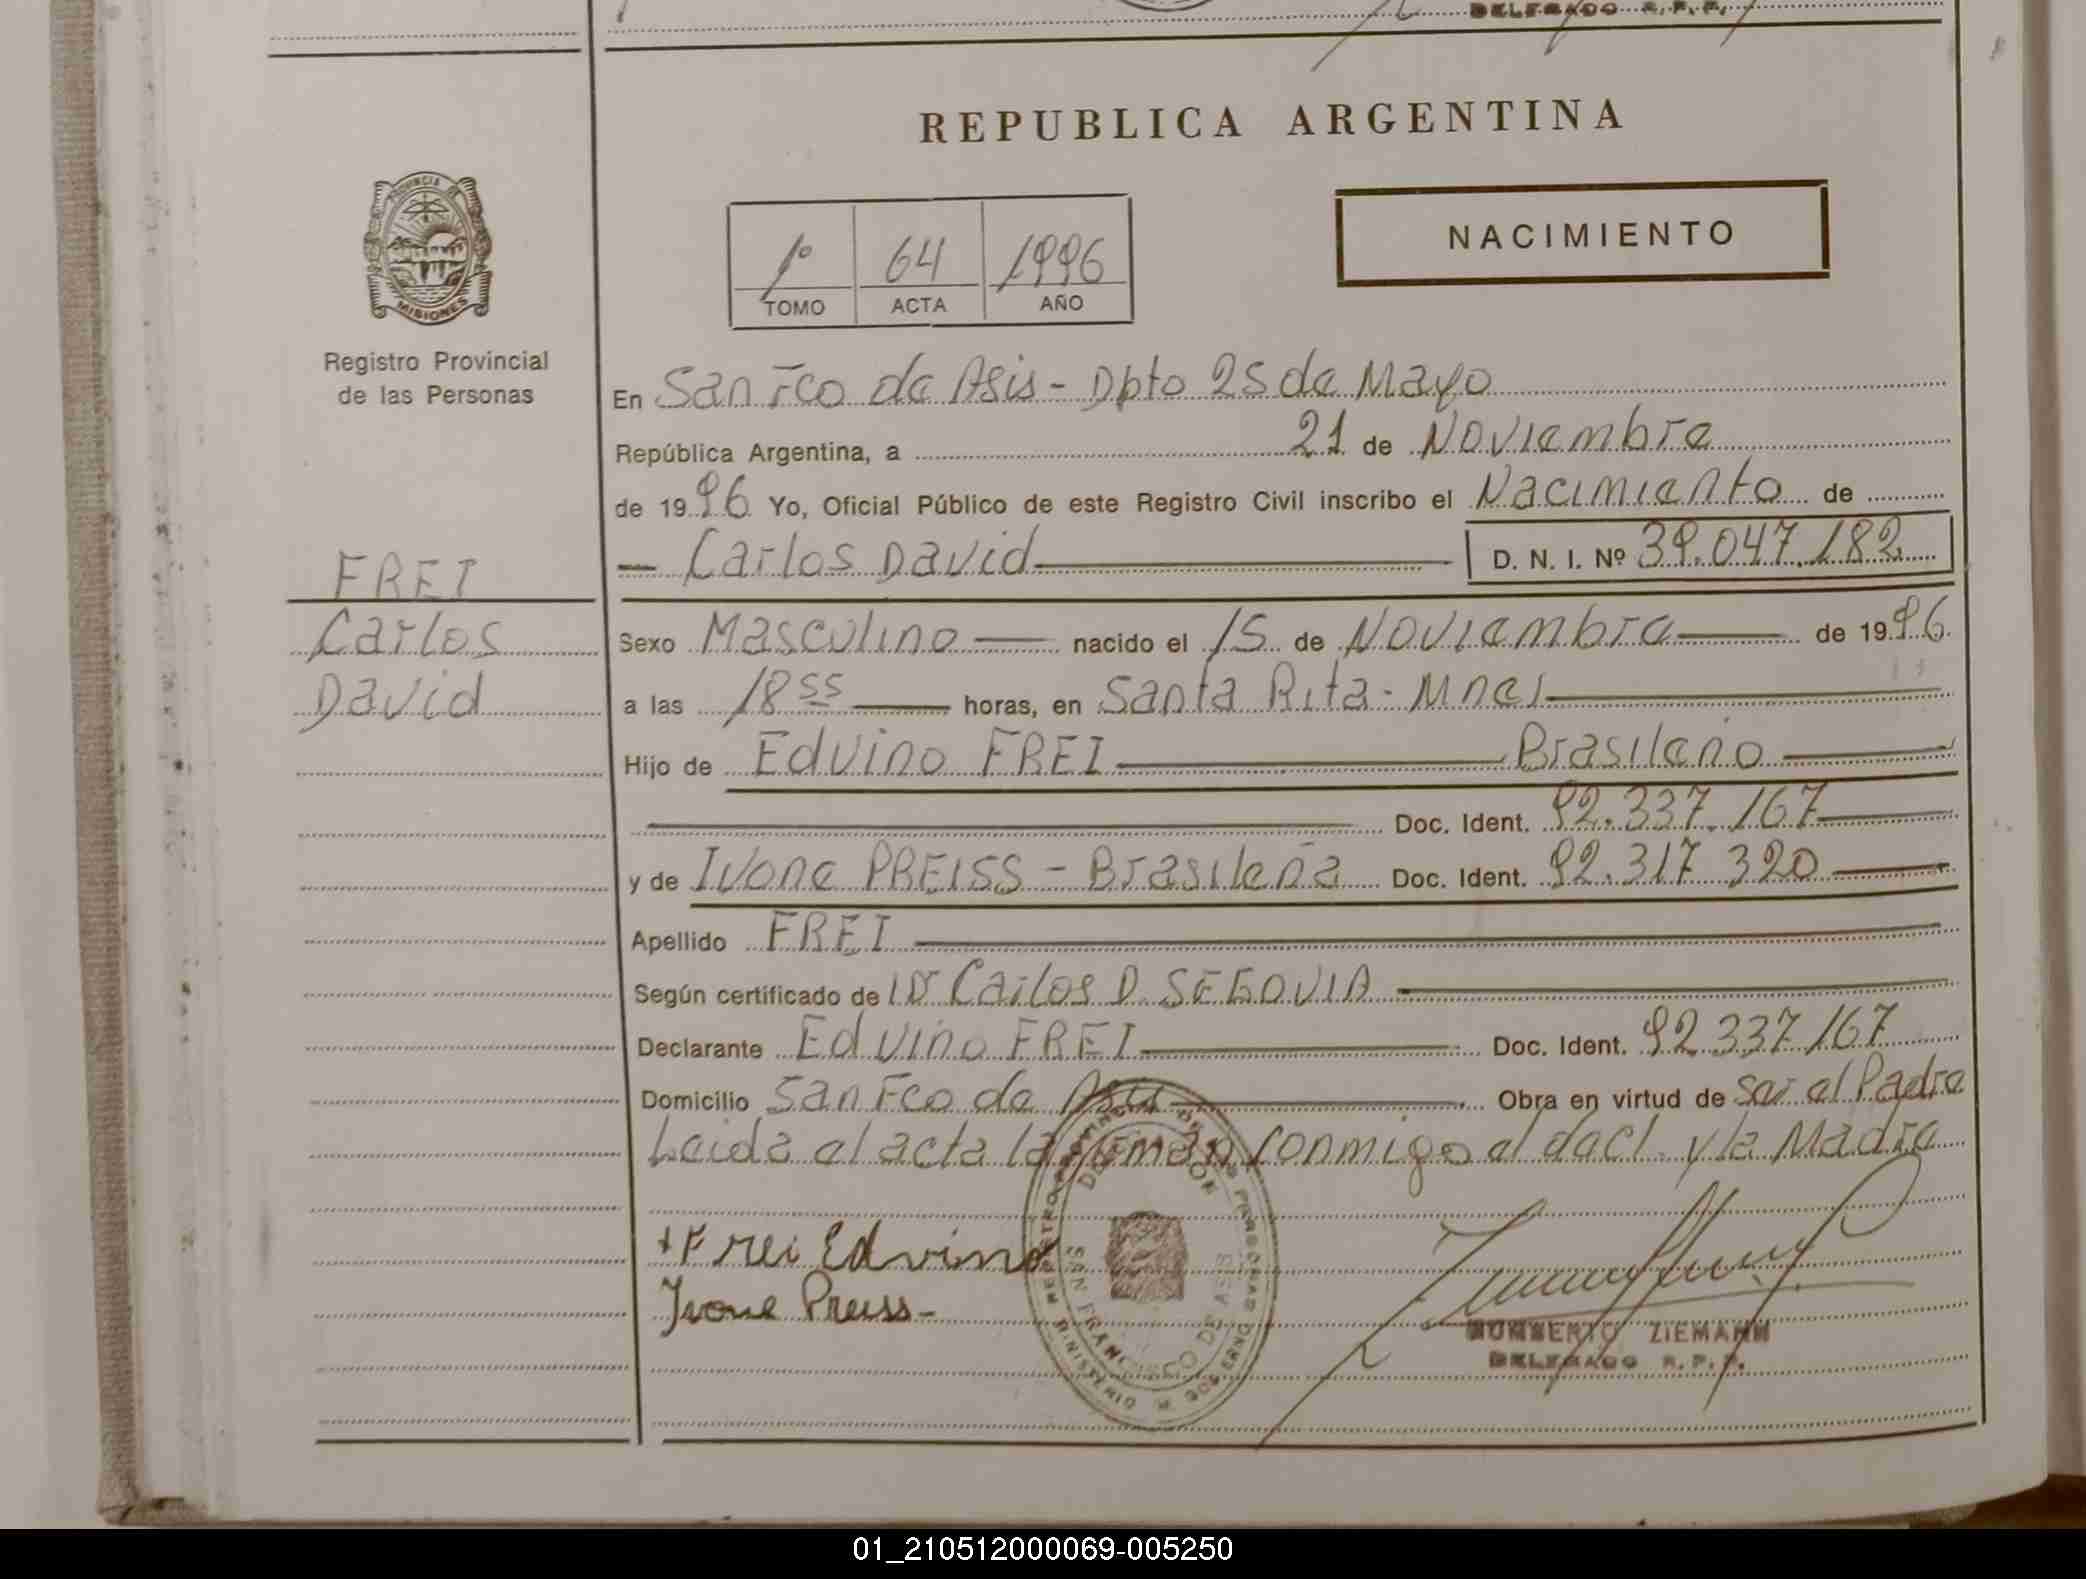 DELEGADO R.P.P.
REPUBLICA ARGENTINA
PROVINCIA DE
MISIONES
Registro Provincial
de las Personas
1º 64 1996
TOMO ACTA AÑO
NACIMIENTO
En San Fco de Asis - Dpto 25 de Mayo
República Argentina, a 21 de Noviembre
de 1996 Yo, Oficial Público de este Registro Civil inscribo el Nacimiento de
Carlos David D. N. I. Nº 39.047.182
FREI
Carlos
David
Sexo Masculino nacido el 15 de Noviembre de 1996
a las 18 55 horas, en Santa Rita - Mnes
Hijo de Edvino FREI Brasileño
Doc. Ident. 92.337.167
y de Ivone PREISS - Brasileña Doc. Ident. 92.317 320
Apellido FREI
Según certificado de Dr Carlos D SEGOVIA
Declarante Edvino FREI Doc. Ident. 92 337 167
Domicilio San Fco de Asis Obra en virtud de ser el Padre
Leida el acta la firman conmigo el decl. y la Madre
+ Frei Edvino
Ivone Preiss -
SAN FRANCISCO DE ASIS
HUMBERTO ZIEMANN
DELEGADO R.P.P.
01_210512000069-005250